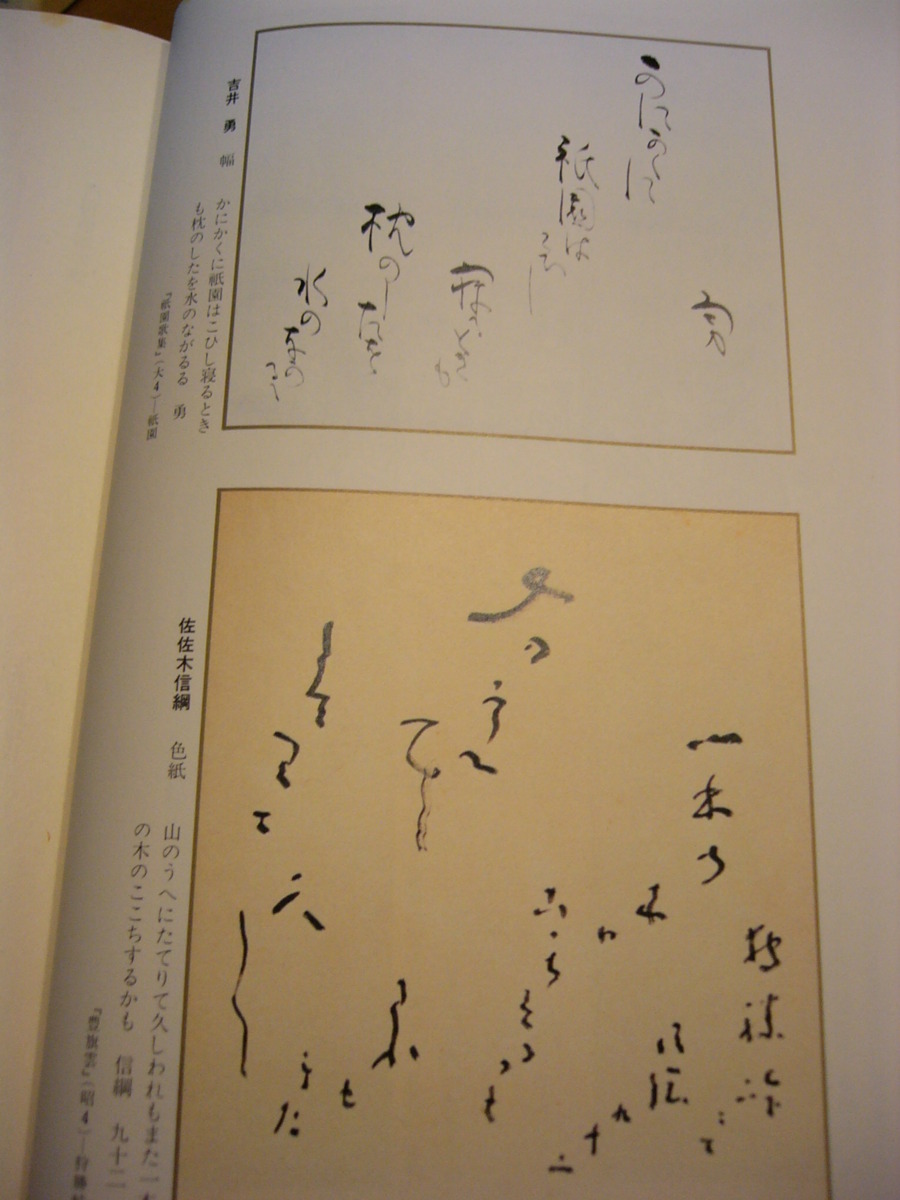 吉井 勇 幅
かにかくに祇園はこひし寝るとき
も枕のしたを水のながるる 勇
『祇園歌集』(大4)―祇園
かにかくに
祇園は
こひし
寝るとき
も
枕のした
水のなか
るゝ
勇
佐佐木信綱 色紙
山のうへにたてりて久しわれもまた一本
の木のここちするかも 信綱 九十二
『豊旗雲』(昭4)―狩勝
山
のうへ
に
たてり
て
久
し
われも
また
一本の
木
の
こゝち
するかも
信綱
九
十
二
狩勝
にて